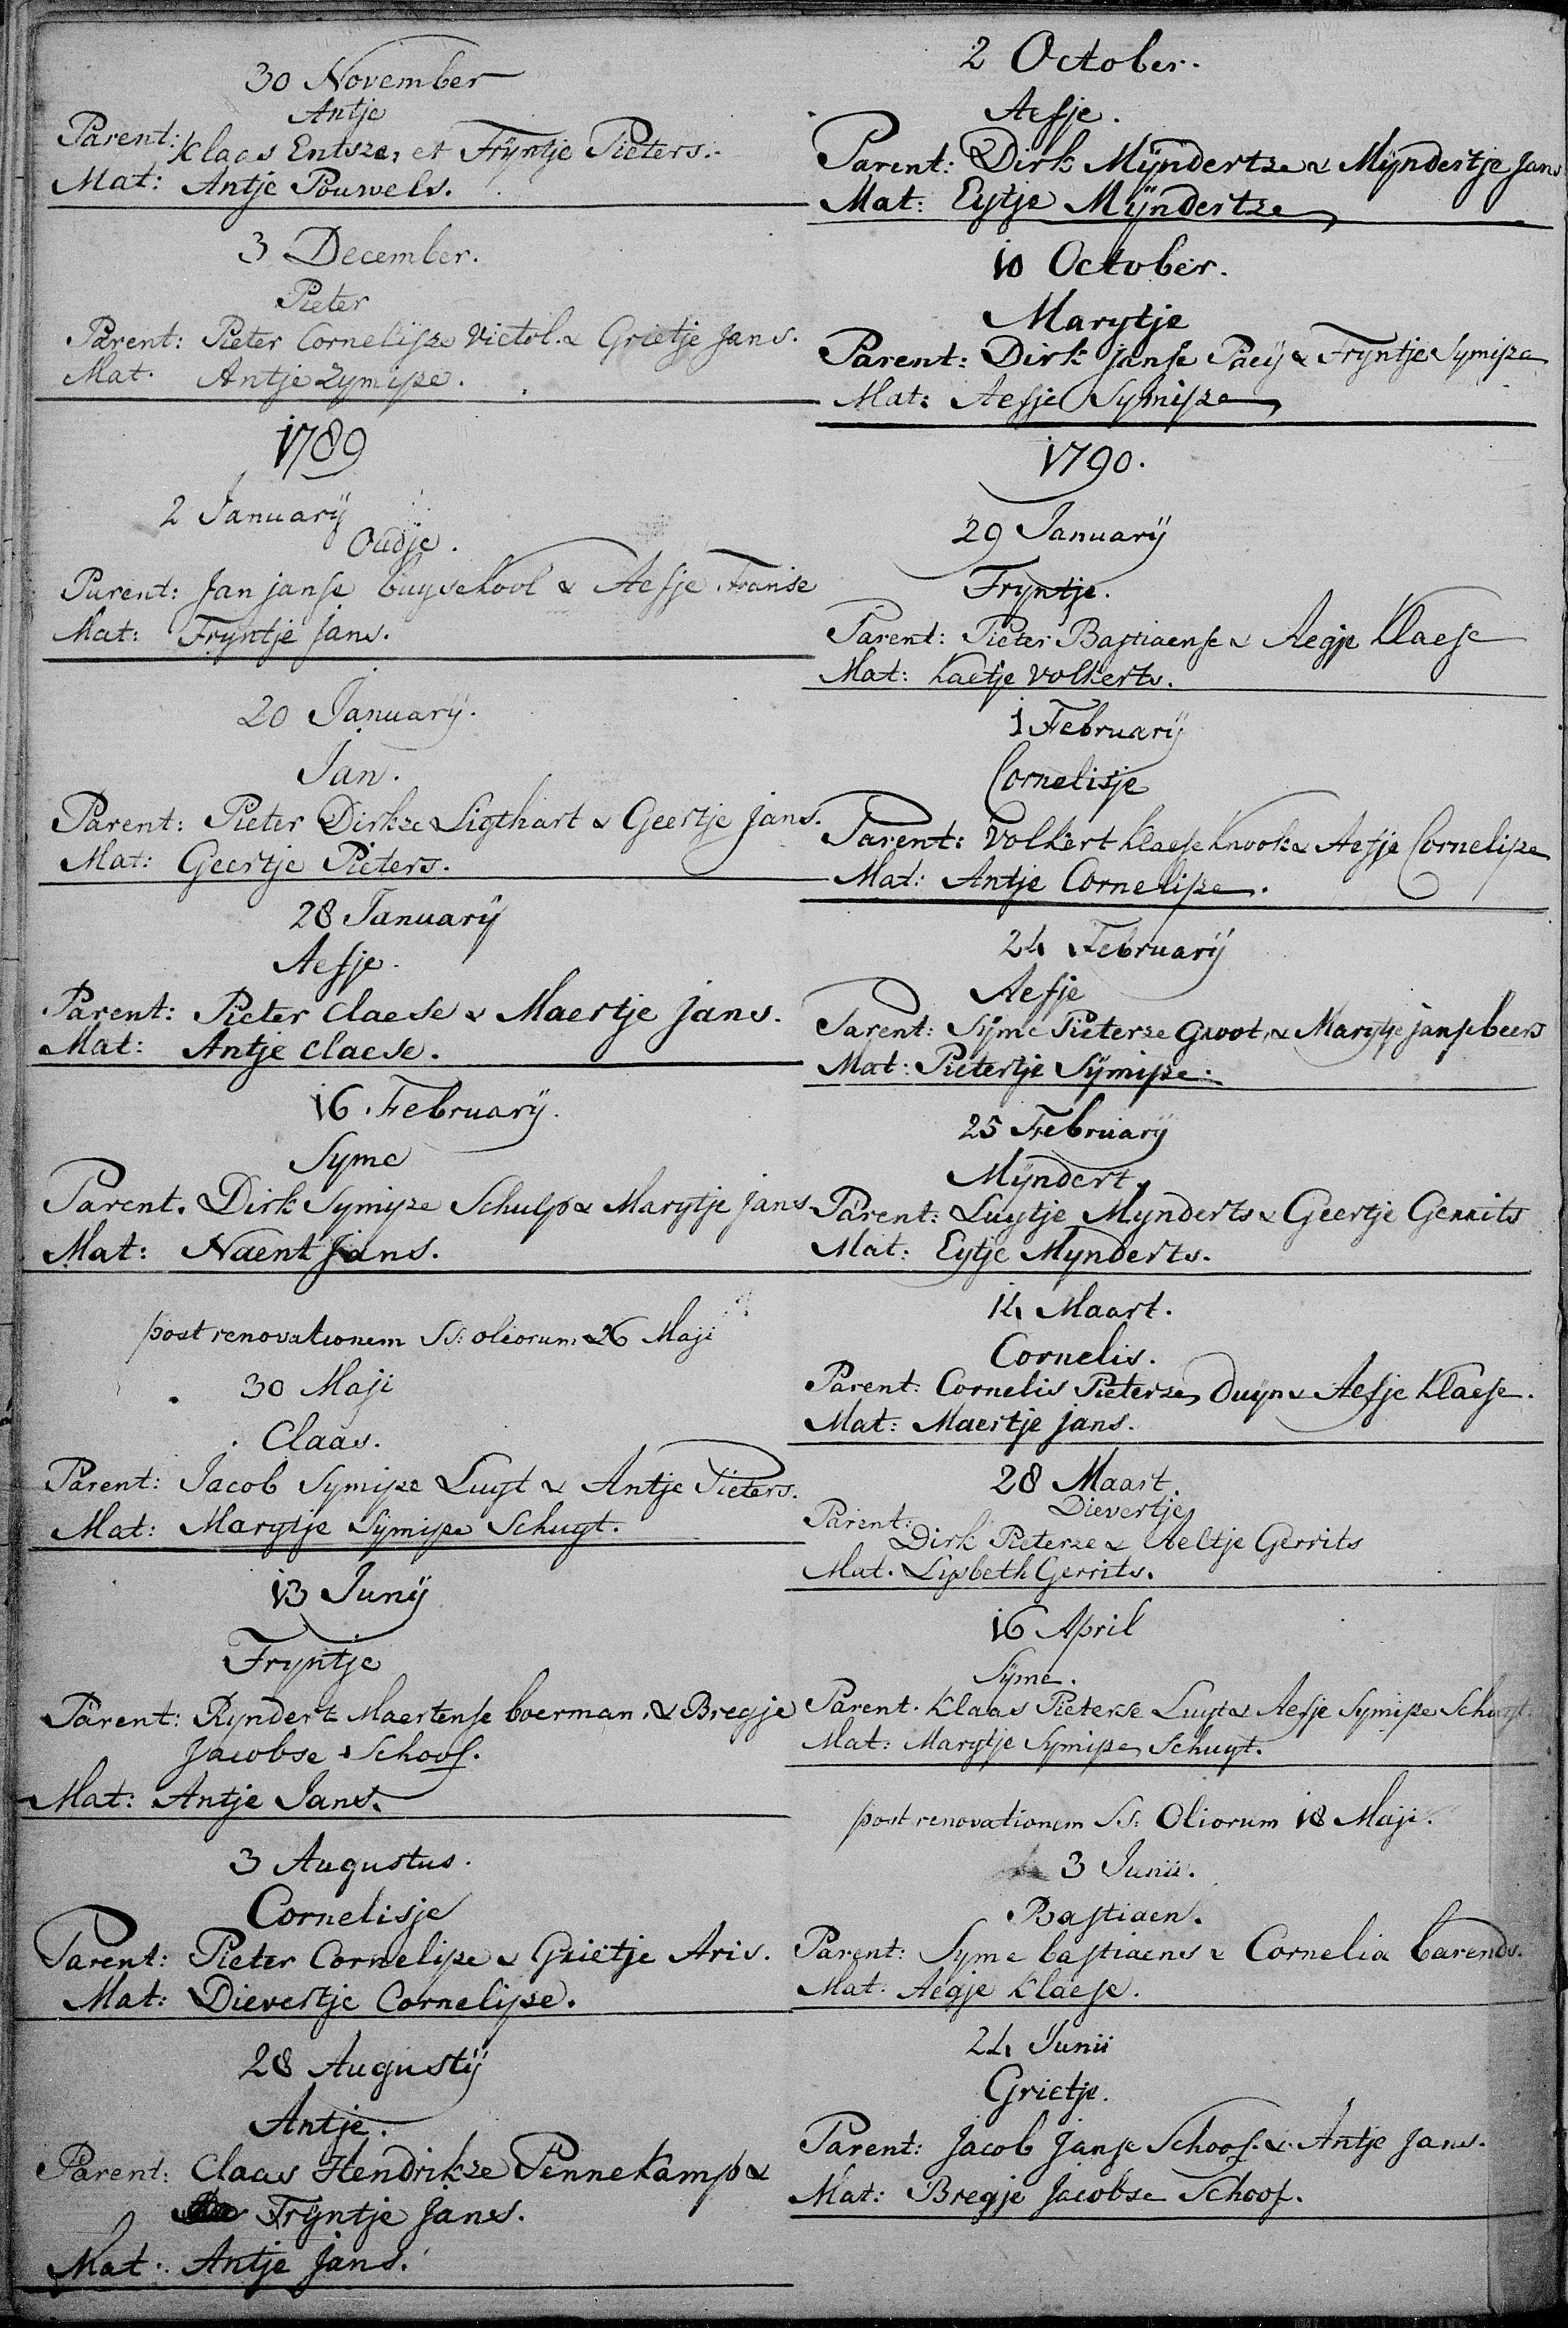 30 November
Antje
Parent: Klaas Entsze, et Trÿntje Pieters.
Mat: Antje Pouwels.
3 December.
Pieter
Parent: Pieter Cornelisze Victol. & Grietje Jans.
Mat. Antje Zymisze.
1789
2 Januarÿ
Oudje.
Parent: Jan janse buyschool & Aefje Franse
Mat: Tryntje Jans.
20 Januarÿ.
Jan.
Parent: Pieter Dirksze Ligthart & Geertje Jans.
Mat: Geertje Pieters.
28 Januarÿ
Aefje.
Parent: Pieter Claese & Maertje Jans.
Mat: Antje Claese.
16 Februarÿ.
Syme
Parent. Dirk Symisze Schulp & Marytje Jans
Mat: Naentjans.
post renovationem SS: oliorum 26 Maji
30 Maji
Claas.
Parent: Jacob Symisze Luyt & Antje Pieters.
Mat: Marytje Sÿmisze Schuyt.
13 Junÿ
Tryntje
Parent: Ryndert Maertense boerman, & Bregje
Jacobse Schoof.
Mat: Antje Jans.
3 Augustus.
Cornelisje
Parent: Pieter Cornelisze & Grietje Aris.
Mat: Dievertje Cornelisze.
28 Augustÿ
Antje.
Parent: Claas Hendrikze Pennekamp &
Trÿntje Jans.
Mat: Antje Jans.
2 October.
Aefje.
Parent: Dirk Mÿndertze & Mÿndertje Jans
Mat: Eytje Mÿndertze
10 October.
Marytje
Parent: Dirk Janse Paeÿ & Tryntje Symisze
Mat: Aefje Symisze
1790.
29 Januarÿ
Tryntje.
Parent: Pieter Bastiaense & Aegje Klaese
Mat: Kaetje Volkerts.
1 Februarÿ
Cornelisje
Parent: Volkert Klaese Knook & Aefje Cornelisze
Mat: Antje Cornelisze.
24 Februarÿ
Aefje
Parent: Sÿme Pieterze Groot, & Marytje janse beers
Mat: Pietertje Sÿmisze.
25 Februarÿ
Mÿndert,
Parent: Luytje Mynderts & Geertje Gerrits
Mat: Eytje Mynderts.
14 Maart.
Cornelis.
Parent: Cornelis Pieterze Duyn & Aefje Klaese.
Mat: Maertje jans.
28 Maart.
Dievertje
Parent:
Dirk Pieterze & Aeltje Gerrits
Mat. Lysbeth Gerrits.
16 April
Sÿme.
Parent. Klaas Pieterse Luyt & Aefje Symisze Schuyt.
Mat: Marytje Symisze Schuyt.
post renovationem SS: Oliorum 18 Maji.
3 Junii.
Bastiaen.
Parent: Syme bastiaens & Cornelia barends.
Mat. Aegje Klaese.
24 Junii
Grietje.
Parent: Jacob Janse Schoof. & Antje Jans.
Mat: Bregje Jacobse Schoof.